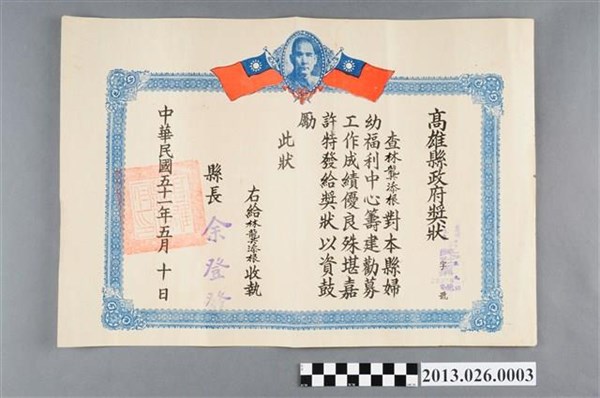 高雄縣政府獎狀
字
號
查林龔添根對本縣婦
幼福利中心籌建勸募
工作成績優良殊堪嘉
許特發給獎狀以資鼓
勵
此狀
右給林龔添根收執
縣長 余登發
中華民國五十一年五月十日
2013.026.0003